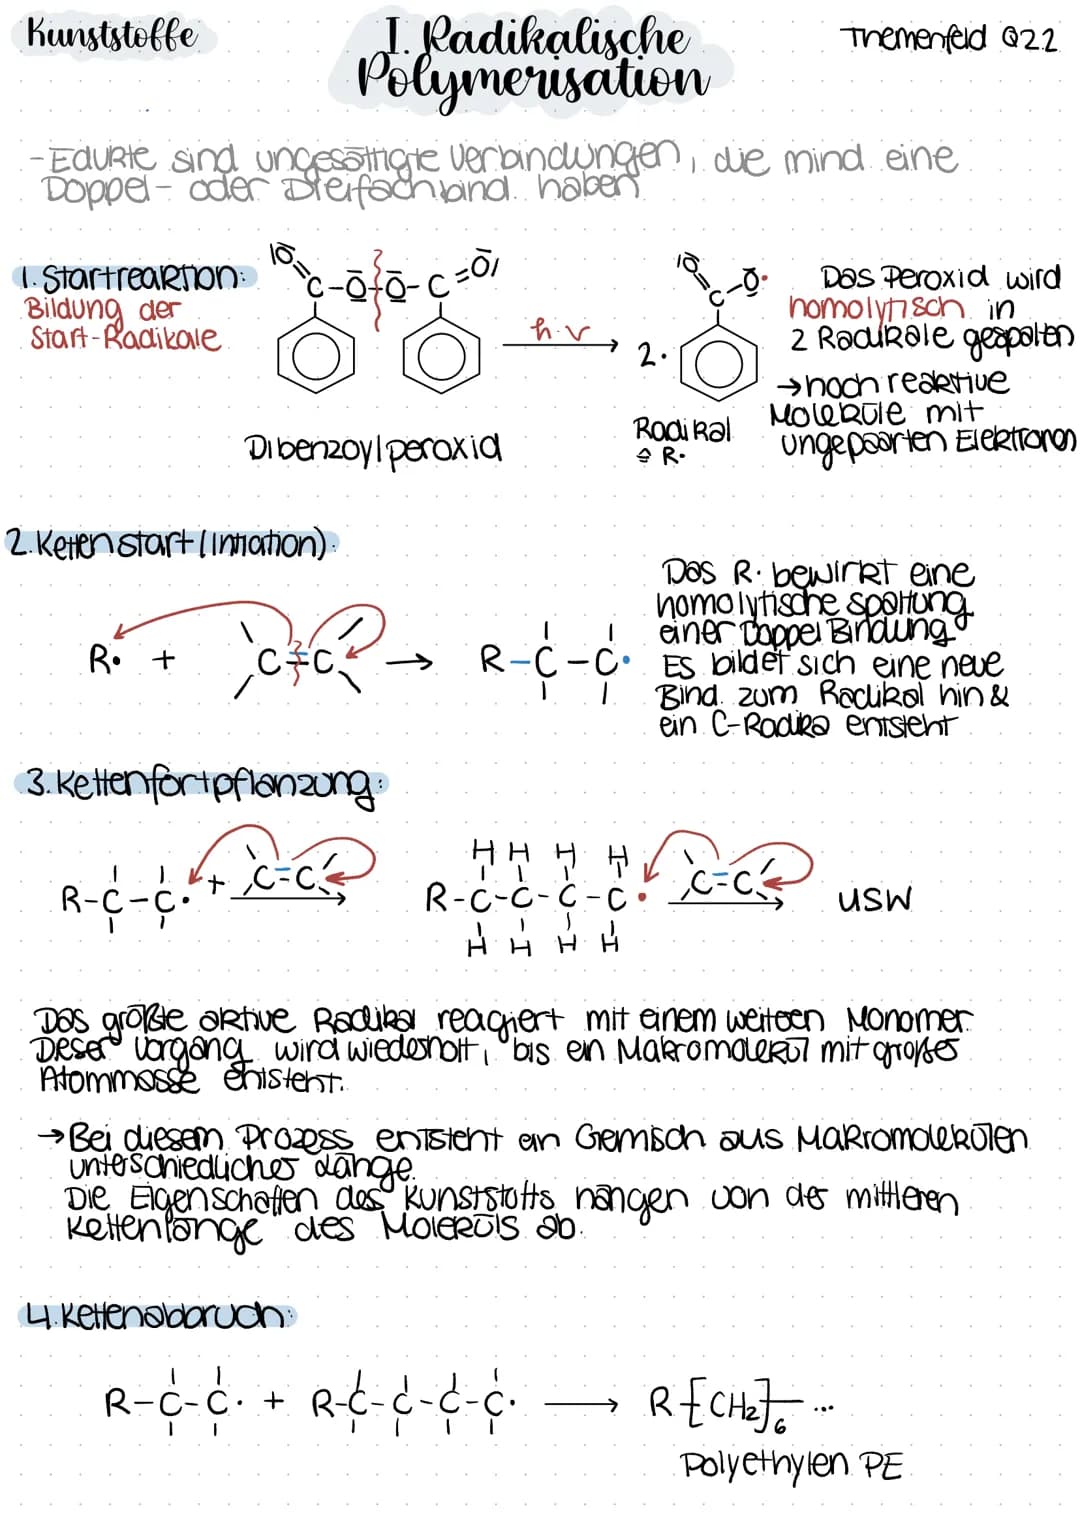 Kunststoffe
I. Radikalische
Polymerisation
Themenfeld Q2.2
- Edukte sind ungesättigte Verbindungen, die mind. eine
Doppel- oder Dreifachbind. haben
1. Startreaktion:
Bildung der
Start-Radikale
h·v
2·
Dibenzoylperoxid
Radikal
≙ R·
Das Peroxid wird
homolytisch in
2 Radikale gespalten
→ hoch reaktive
Moleküle mit
ungepaarten Elektronen
2. Kettenstart (Initiation):
R· + C=C → R-C-C·
Das R· bewirkt eine
homolytische Spaltung
einer Doppel Bindung
Es bildet sich eine neue
Bind. zum Radikal hin &
ein C-Radika entsteht
3. Kettenfortpflanzung:
H H H H
R-C-C· + C=C R-C-C-C-C· C=C usw
H H H H
Das größte aktive Radikal reagiert mit einem weiteren Monomer.
Deser Vorgang wird wiederholt, bis ein Makromolekül mit großer
Atommasse entsteht.
→ Bei diesem Prozess entsteht ein Gemisch aus Makromolekülen
unterschiedlicher Länge.
Die Eigenschaften des Kunststoffs hängen von der mittleren
Kettenlänge des Moleküls ab.
4. Kettenabbruch:
R-C-C· + R-C-C-C-C· → R-[CH₂]₆ ...
Polyethylen PE